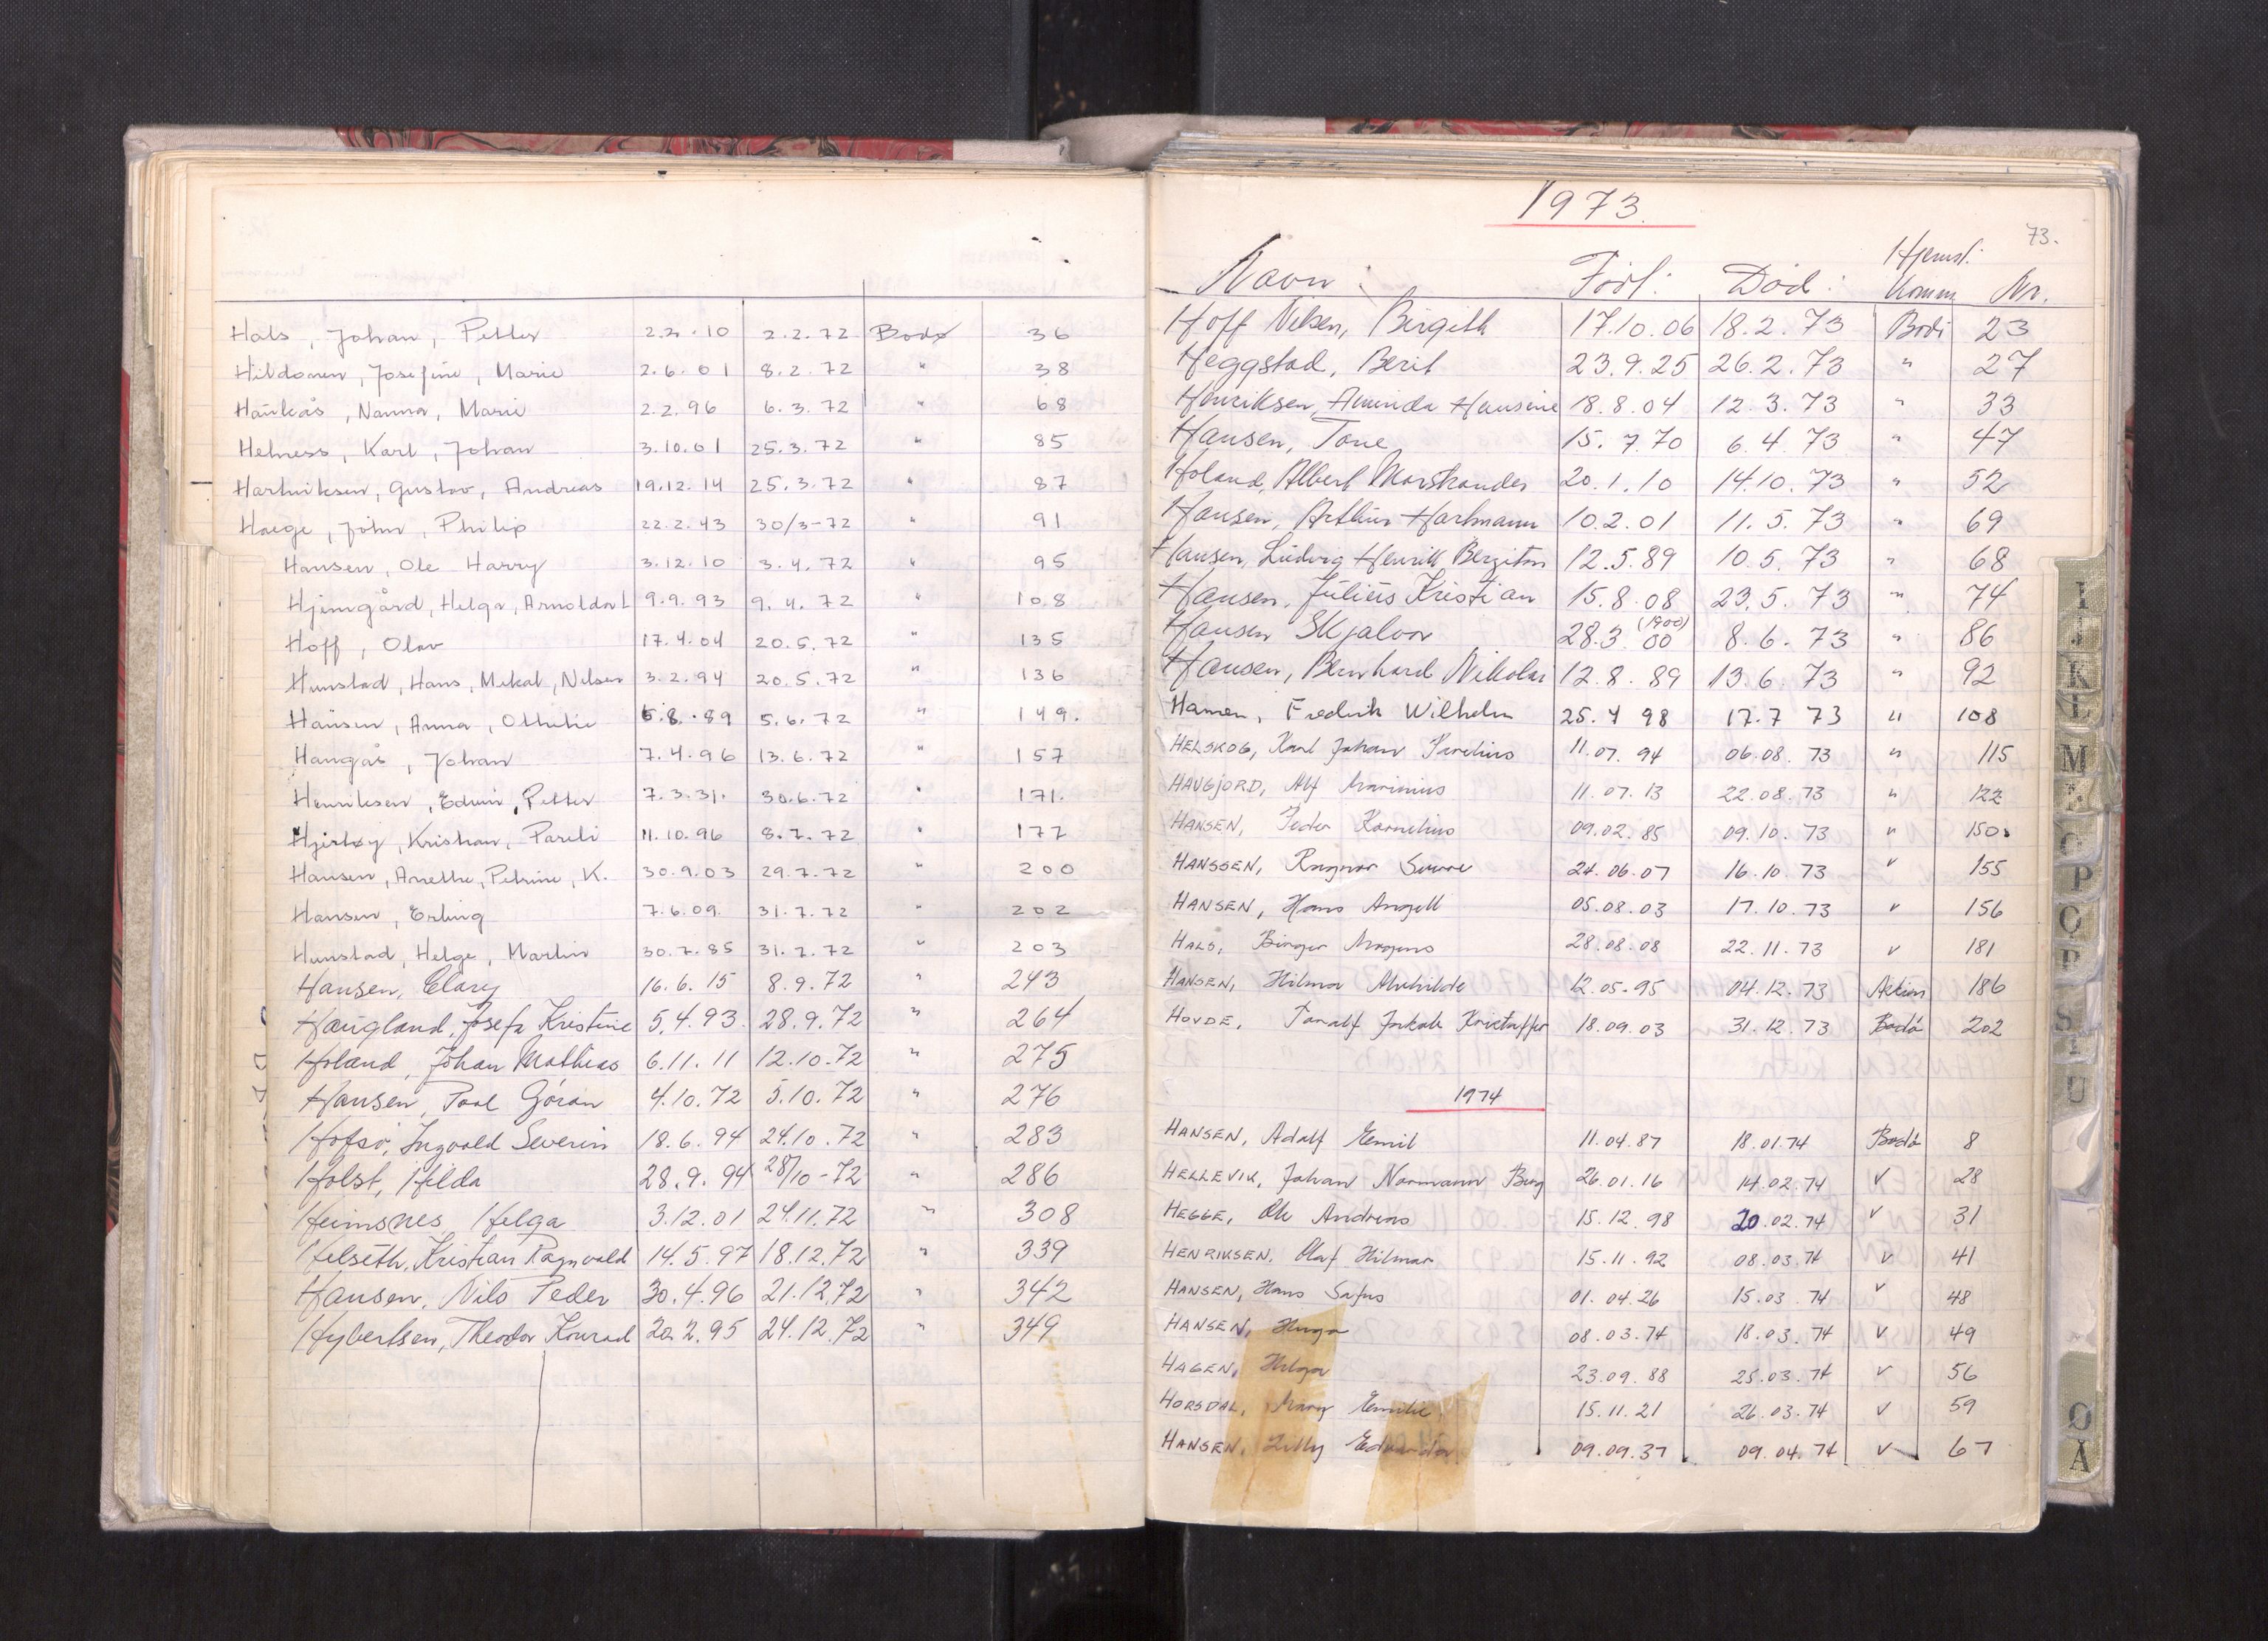 Hals, Johan, Petter 2.2.10 2.2.72 Bodø 36
Hildonen, Josefine, Marie 2.6.01 8.2.72 " 38
Haukås, Nanna, Marie 2.2.96 6.3.72 " 68
Helness, Karl, Johan 3.10.01 25.3.72 " 85
Hartviksen, Gustav, Andreas 19.12.14 25.3.72 " 87
Hæge, John, Philip 22.2.43 30/3-72 " 91
Hansen, Ole Harry 3.12.10 3.4.72 " 95
Hjemgård, Helga, Arnolda L 9.9.93 9.4.72 " 108
Hoff, Olav 17.4.04 20.5.72 " 135
Hunstad, Hans, Mikal, Nilsen 3.2.94 20.5.72 " 136
Hansen, Anna, Othilie 5.8.89 5.6.72 " 149.
Haugås, Johan 7.4.96 13.6.72 " 157
Henriksen, Edvin, Petter 7.3.31. 30.6.72 " 171.
Hjertøy, Kristian, Pareli 11.10.96 8.7.72 " 177
Hansen, Anethe, Petrine, K. 30.9.03 29.7.72 " 200
Hansen, Erling 7.6.09. 31.7.72 " 202
Hunstad, Helge, Martin 30.7.85 31.7.72 " 203
Hansen, Clary 16.6.15 8.9.72 " 243
Haugland, Josefa Kristine 5.4.93. 28.9.72 " 264
Holand, Johan Mathias 6.11.11 12.10.72 " 275
Hansen, Paal Gøran 4.10.72 5.10.72 " 276
Hofsø, Ingvald Severin 18.6.94 24.10.72 " 283
Holst, Hilda 28.9.94 28/10-72 " 286
Heimsnes, Helga 3.12.01 24.11.72 " 308
Helseth, Kristian Ragnvald 14.5.97 18.12.72 " 339
Hansen, Nils Peder 30.4.96 21.12.72 " 342
Hybertsen, Theodor Konrad 20.2.95 24.12.72 " 349
1973
73.
Navn: Født: Død: Hjemst. Komm Nr.
Hoff Nilsen, Birgith 17.10.06 18.2.73 Bodø 23
Heggstad, Berit 23.9.25 26.2.73 " 27
Henriksen, Aminda Hansine 18.8.04 12.3.73 " 33
Hansen, Tone 15.7.70 6.4.73 " 47
Holand, Albert Marskander 20.1.10 14.10.73 " 52
Hansen, Arthur Hartmann 10.2.01 11.5.73 " 69
Hansen, Ludvig Henrik Bergiton 12.5.89 10.5.73 " 68
Hansen, Julius Kristian 15.8.08 23.5.73 " 74
Hansen Skjalvor 28.3.00 (1900) 8.6.73 " 86
Hansen, Bernhard Nikolai 12.8.89 13.6.73 " 92
Hansen, Fredrik Wilhelm 25.4 98 17.7 73 " 108
HELSKOG, Karl Johan Parelius 11.07.94 06.08.73 " 115
HAUGJORD, Alf Marinius 11.07.13 22.08.73 " 122
HANSEN, Peder Kornelius 09.02.85 09.10.73 " 150
HANSSEN, Ragnar Sverre 24.06.07 16.10.73 " 155
HANSEN, Hans Angell 05.08.03 17.10.73 " 156
HALS, Birger Magnus 28.08.08 22.11.73 " 181
HANSEN, Hilma 12.05.95 04.12.73 186
HOVDE, Jakob Kristoffer 18.09.03 31.12.73 Bodø 202
1974
HANSEN, Adolf Emil 11.04.87 18.01.74 Bodø 8
HELLEVIK, Johan Normann Berg 26.01.16 14.02.74 " 28
HEGGE, Ole Andreas 15.12.98 20.02.74 " 31
HENRIKSEN, Olaf Hilmar 15.11.92 08.03.74 " 41
HANSEN, Hans Sofus 01.04.26 15.03.74 " 48
HANSEN, Hugo 08.03.74 18.03.74 " 49
HAGEN, Helga 23.09.88 25.03.74 " 56
HORSDAL, Mary Emilie 15.11.21 26.03.74 " 59
HANSEN, Lilly Edvarda 09.09.37 09.04.74 " 67
I
J
K
L
M
N
O
P
Q
R
S
T
U
Ø
Å